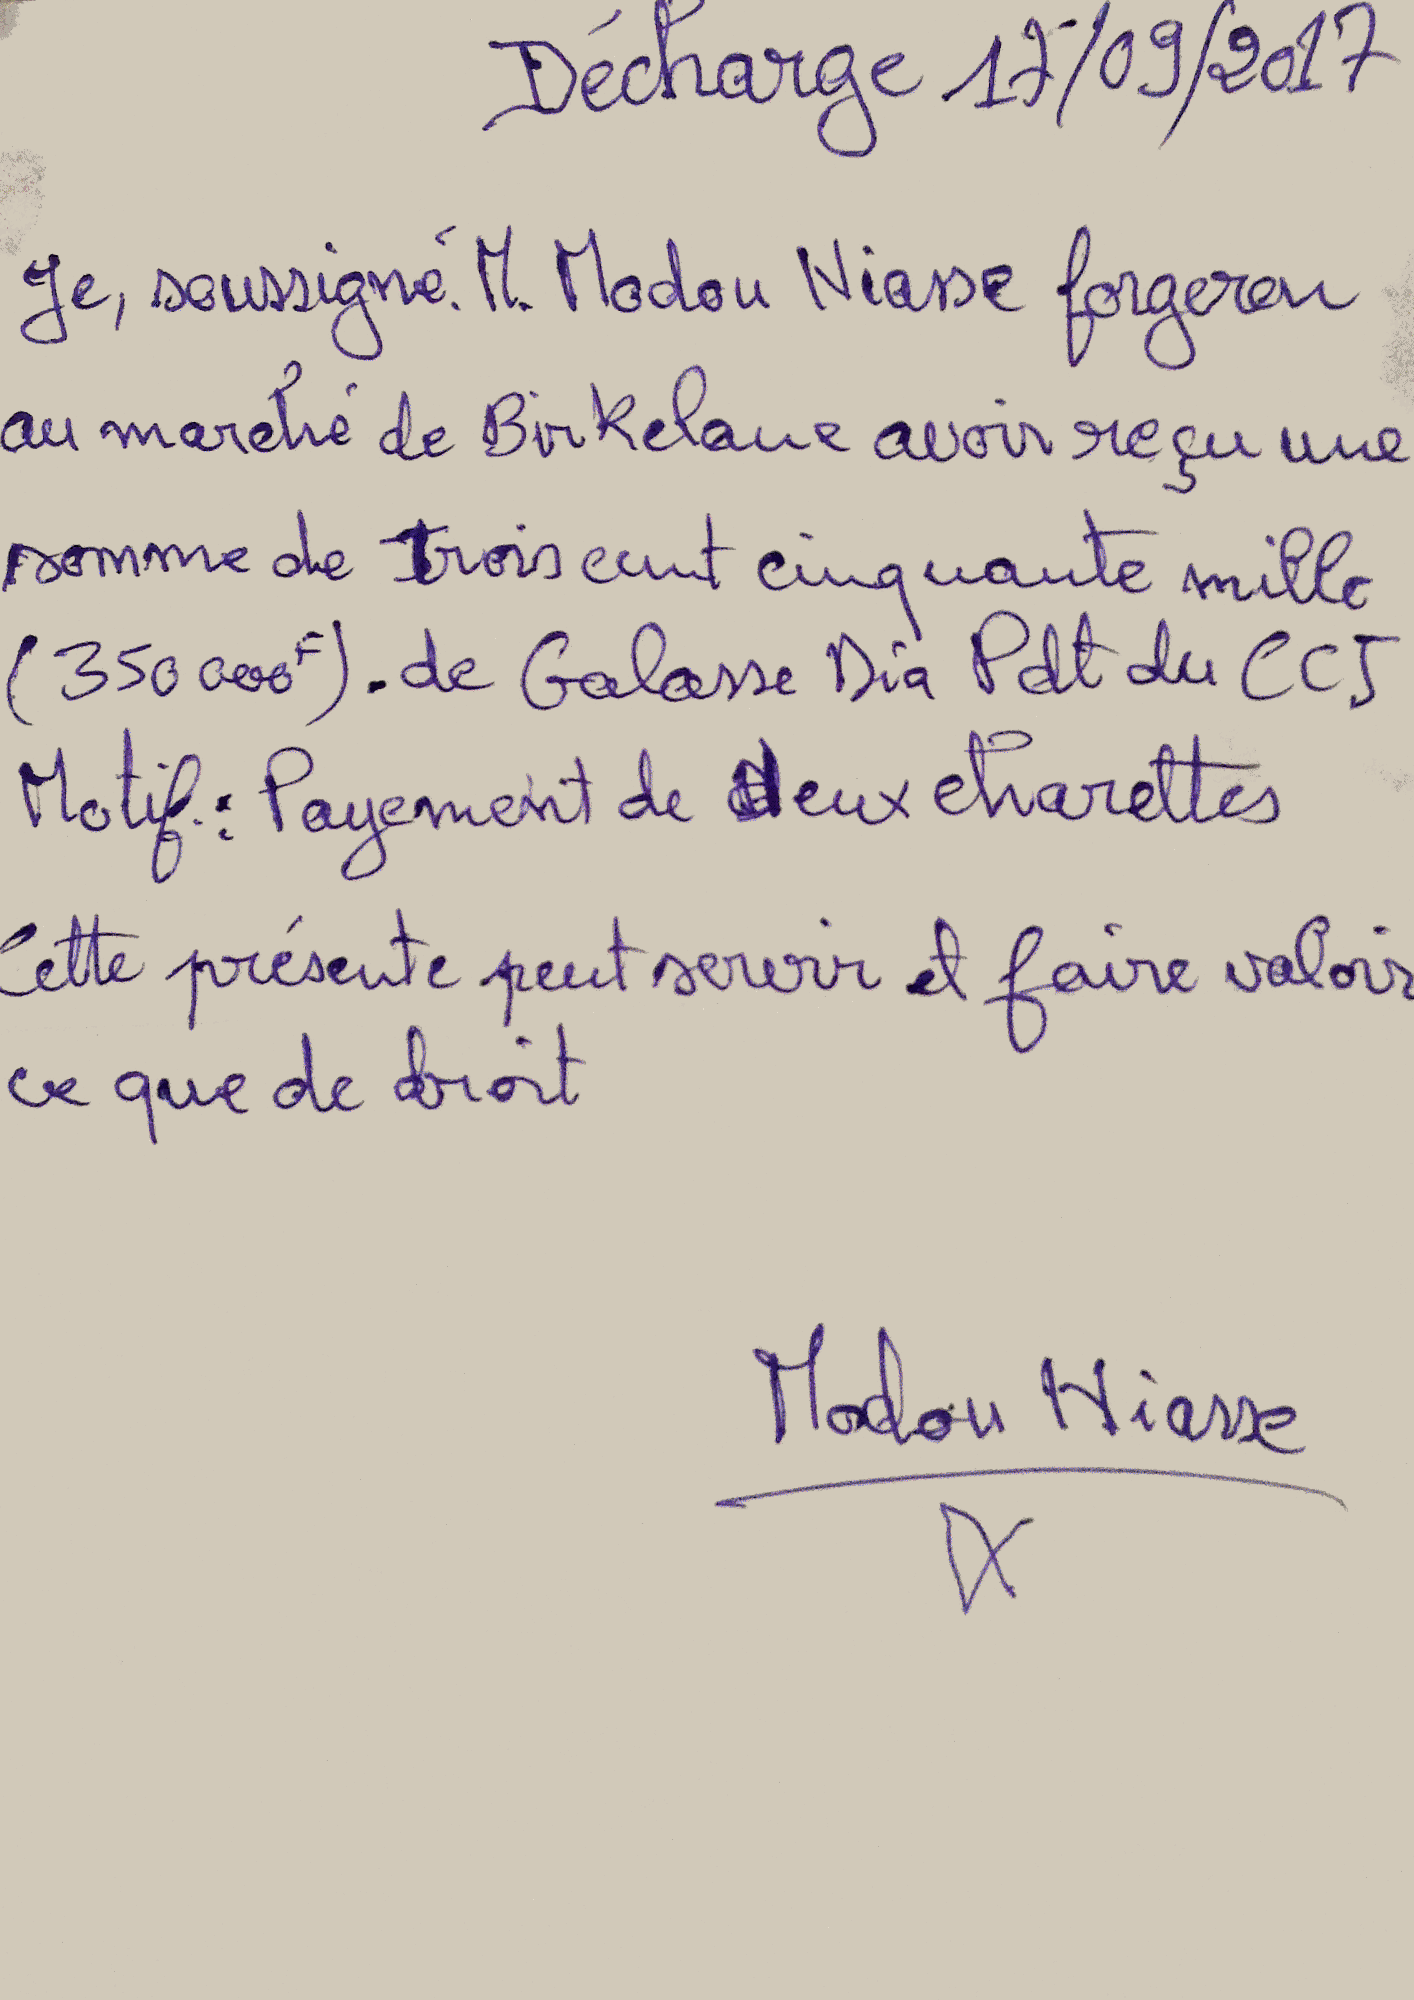 Décharge 17/09/2017
Je, soussigné. M. Modou Niasse forgeron
au marché de Birkelane avoir reçu une
somme de Trois cent cinquante mille
(350 000F). de Galasse Dia Pdt du CCJ
Motif : Payement de deux charettes
Cette présente peut servir et faire valoir
ce que de droit
Modou Niasse